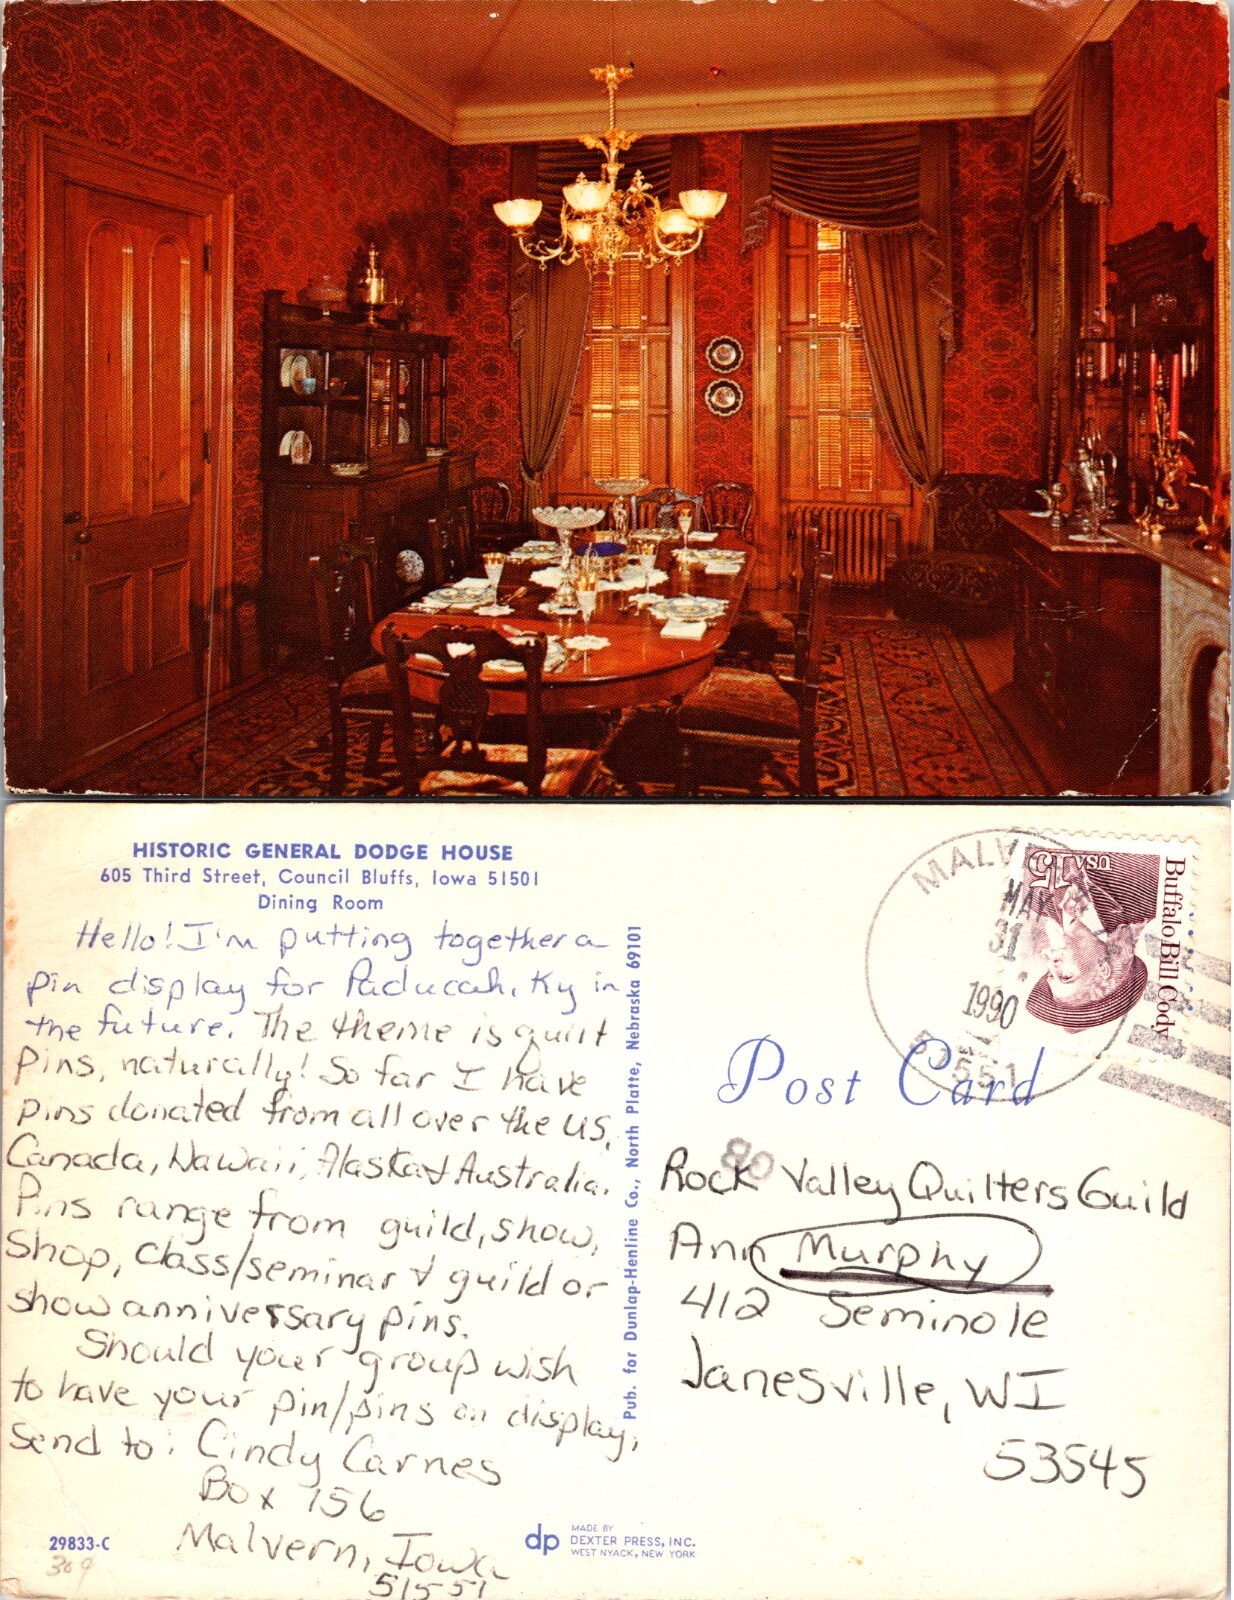 HISTORIC GENERAL DODGE HOUSE
605 Third Street, Council Bluffs, Iowa 51501
Dining Room
Hello! I'm putting together a
pin display for Paducah, Ky in
the future. The theme is quilt
pins, naturally! So far I have
pins donated from all over the US,
Canada, Hawaii, Alaska & Australia.
Pins range from guild, show,
shop, class/seminar & guild or
show anniversary pins.
Should your group wish
to have your pin/pins on display,
send to: Cindy Carnes
Box 156
Malvern, Iowa
51551
29833-C
309
Pub. for Dunlap-Henline Co., North Platte, Nebraska 69101
dp
MADE BY
DEXTER PRESS, INC.
WEST NYACK, NEW YORK
MAY
31
1990
51551
Buffalo Bill Cody
USA 15
Post Card
80
Rock Valley Quilters Guild
Ann Murphy
412 Seminole
Janesville, WI
53545